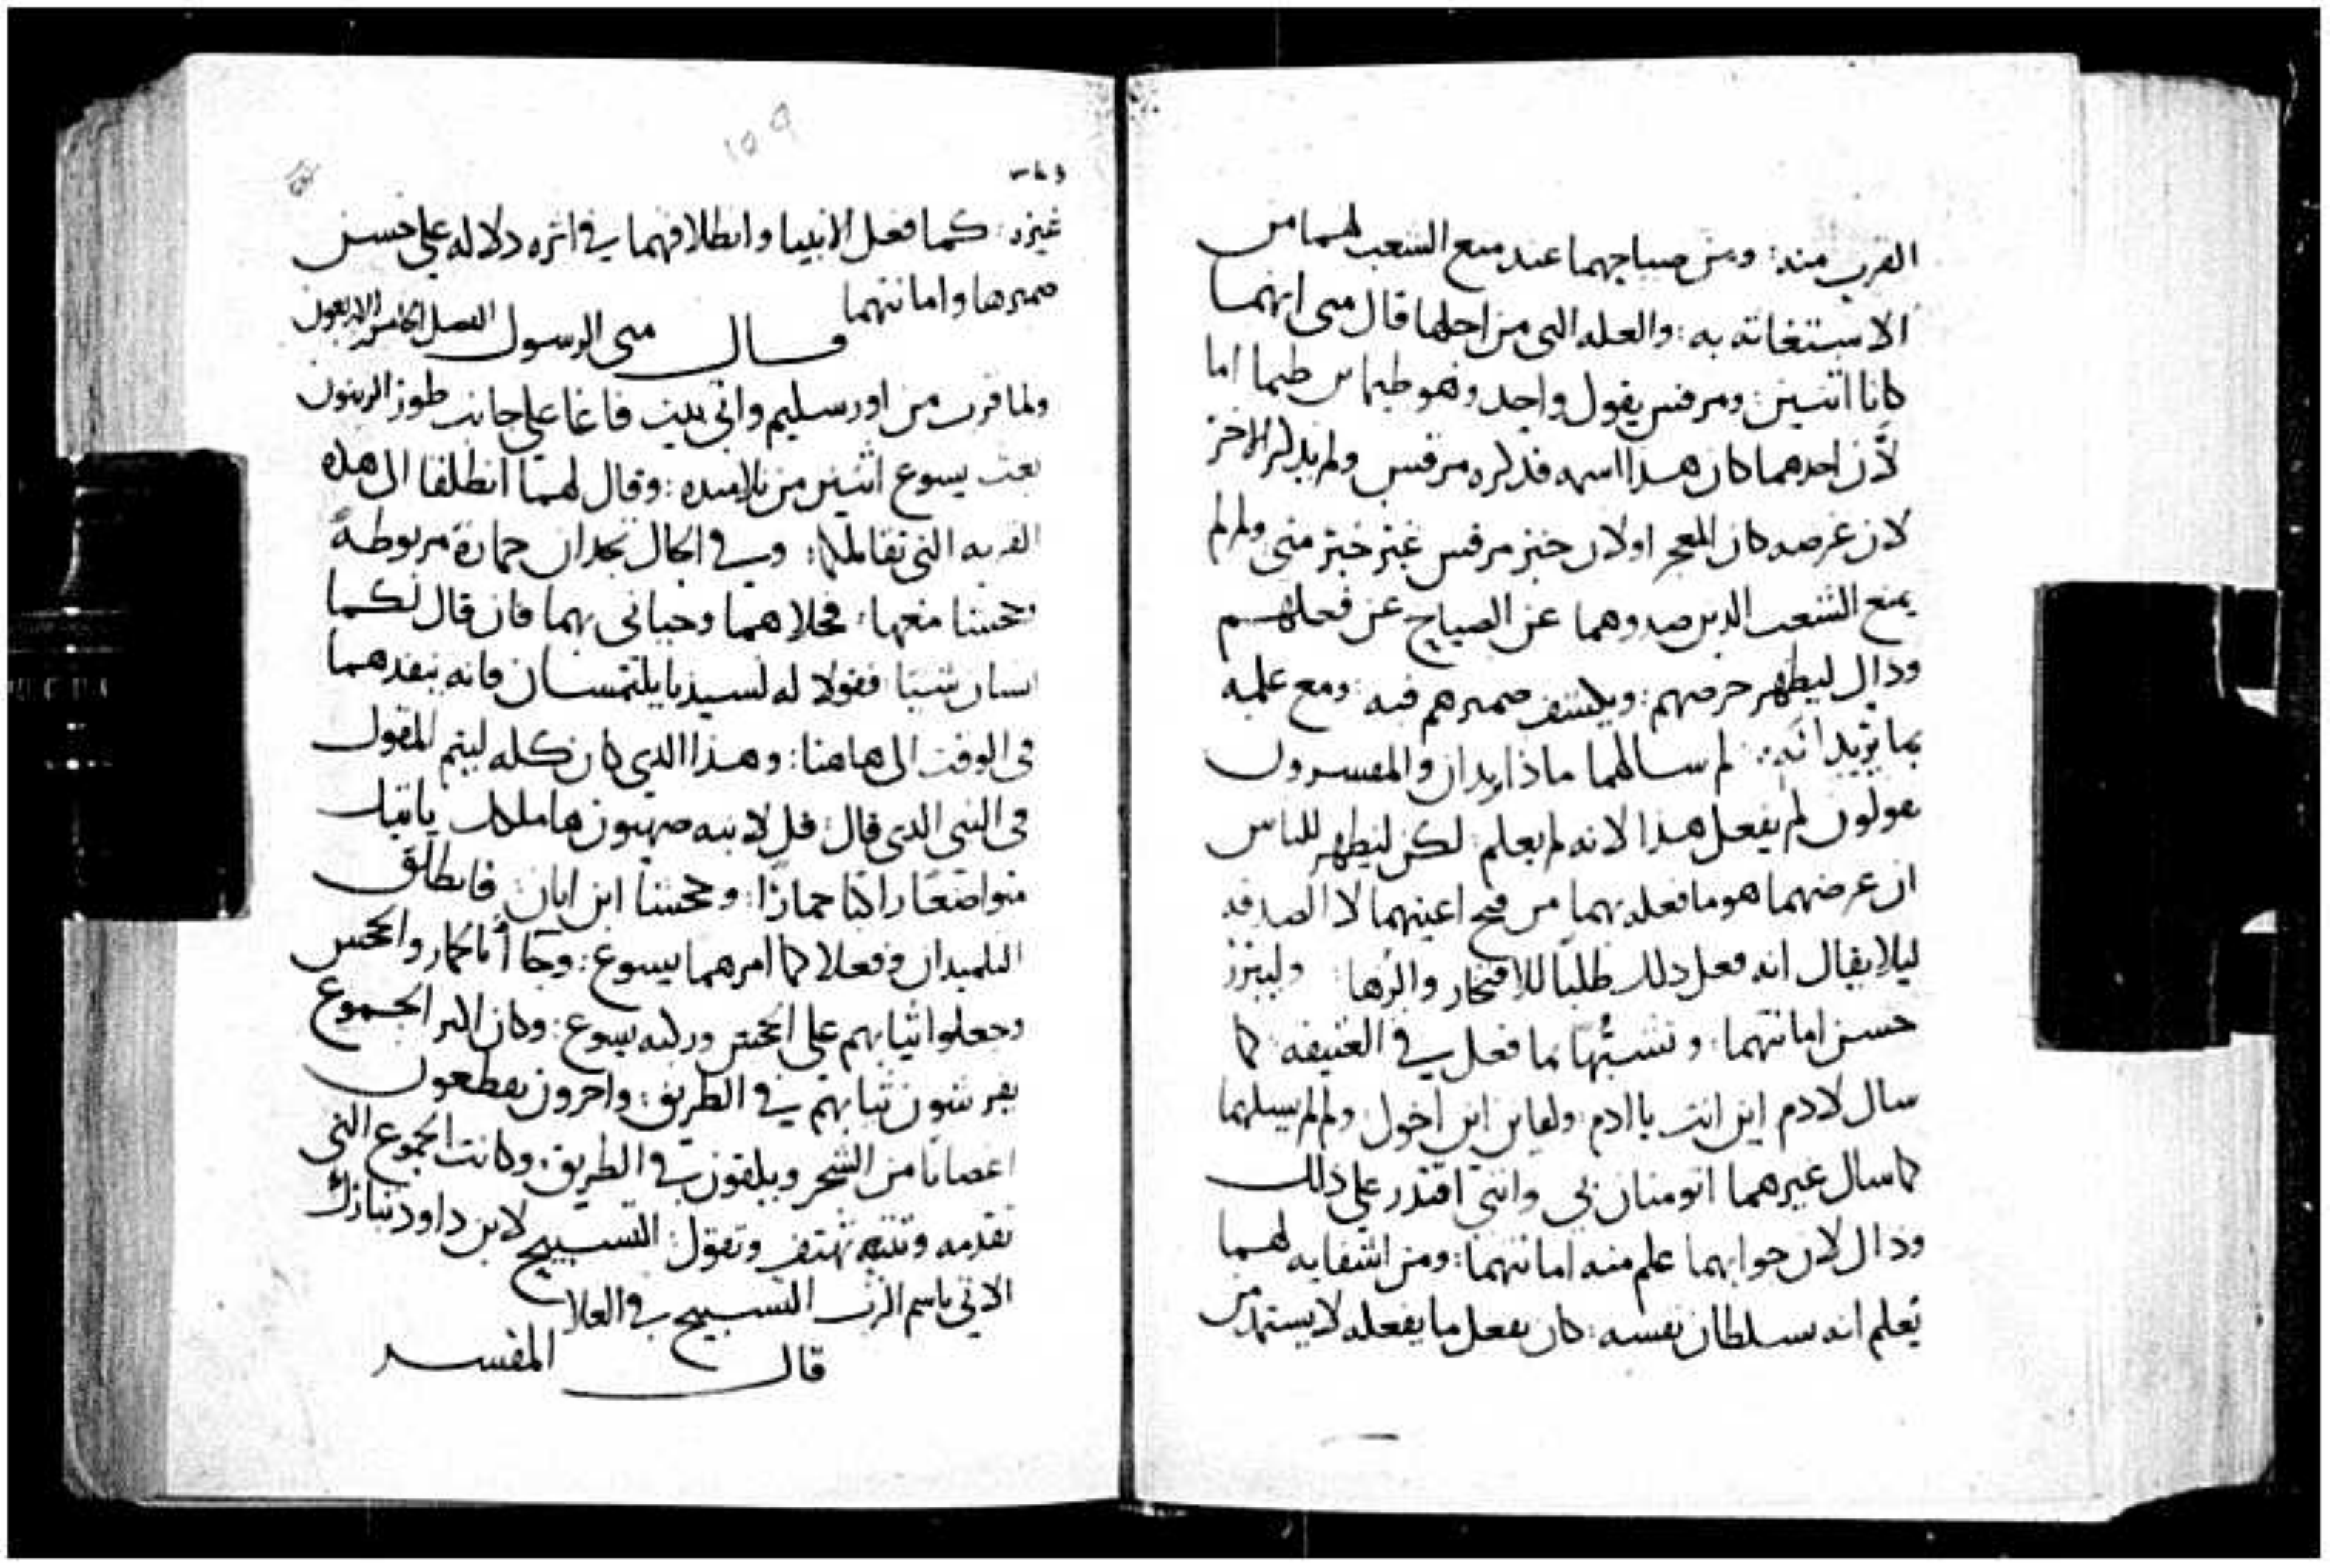 القرب منه: ومن صياحهما عند منع الشعب لهما من
الاستغاثه به: والعله التى من اجلها قال متى انهما
كانا اثنين: ومرقس يقول واحد وهو طيماس طيما اما
لأن احدهما كان هذا اسمه فذكره مرقس ولم يذكر الاخر
لان غرضه كان المعجز اولان خبر مرقس غير خبر متى ولم لم
يمنع الشعب الدين صدوهما عن الصياح عن فعلهم
وذاك ليظهر حرصهم: ويكشف ضميرهم فيه: ومع علمه
بما يريدانه: لم سالهما ماذا يريدان والمفسرون
يقولون لم يفعل هذا لانه لم يعلم: لكن ليظهر للناس
ان غرضهما هو ما فعله بهما من فتح اعينهما لا الصدقه
ليلا يقال انه فعل ذلك طلبًا للافتخار والزها: وليبرز
حسن امانتهما: وتشبهًا بما فعل في العتيقه: كما
سال لادم اين انت يا ادم: ولقاين اين اخوك: ولم لم يسلهما
كما سال غيرهما اتومنان بى وانني اقتدر على ذلك
وذاك لان جوابهما علم منه امانتهما: ومن اشفايه لهما
تعلم انه بسلطان نفسه: كان يفعل ما يفعله لا يستمد من
غيره: كما فعل الانبيا وانطلاقهما في اثره دلاله على حسن
ضميرها وامانتهما
قال متى الرسول الفصل الخامس والاربعون
ولما قرب من اورسليم واتى بيت فاغا على جانب طور الزيتون
بعث يسوع اثنين من تلاميده: وقال لهما انطلقا الى هده
القريه التى تقابلكما: وفي الحال تجدان حمارة مربوطةً
وجحشا معها: فحلاهما وجيانى بهما فان قال لكما
انسان شيئا فقولا له لسيدنا يلتمسان فانه ينفدهما
فى الوقت الى هاهنا: وهذا الدى كان كله ليتم المقول
فى النبى الدى قال: قل لابنه صهيون هاملكك ياتيك
متواضعًا راكبًا حمارًا: وجحشنا ابن اتان فانطلق
التلميدان وفعلا كما امرهما يسوع: وجاأ بالحمار والجحش
وجعلوا ثيابهم على الجحش وركبه يسوع: وكان اكثر الجموع
يفرشون ثيابهم في الطريق: واخرون يقطعون
اغصانا من الشجر ويلقون في الطريق: وكانت الجموع التى
تقدمه وتتبعه تهتف وتقول: التسبيح لابن داود تبارك
الاتي باسم الرب التسبيح في العلا
قال المفسر